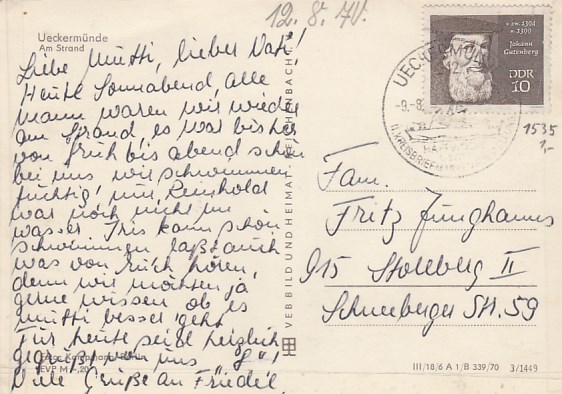 12. 8. 70.
Ueckermünde
Am Strand
Liebe Mutti, lieber Vati!
Heute Sonnabend, alle
mann waren wir wieder
am Strand, es war bisher
von früh bis abend schön
bei uns wir schwimmen
tüchtig, nur Reinhold
war noch nicht im
wasser Iris kann schön
schwimmen laßt auch
was von Euch hören,
denn wir möchten ja
gerne wissen ob es
mutti besser geht
Für heute seid herzlich
gegrüßt von uns
Viele Grüße an Friedel.
EVP M -,20
VEB BILD UND HEIMAT REICHENBACH
v. zw. 1394
u. 1399
Johann
Gutenberg
DDR
10
UECKERMÜNDE
-9.-8.
1535
1,-
Fam.
Fritz Junghanns
915 Stollberg II
Schneeberger Str. 59
III/18/6 A 1/B 339/70 3/1449